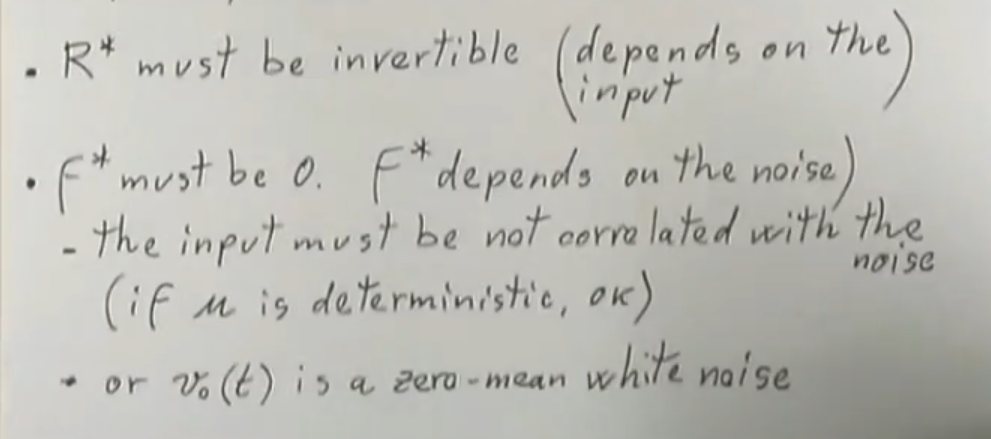 • R* must be invertible (depends on the
input)
• f* must be 0. F* depends on the noise)
- the input must be not correlated with the
noise
(if u is deterministic, ok)
• or v₀(t) is a zero-mean white noise